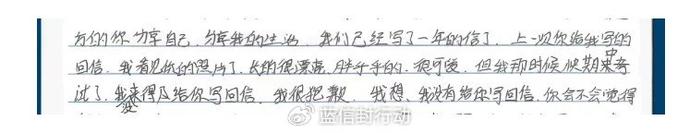 方的你分享自己，分享我的生活，我们已经写了一年的信了，上一次你给我写的
回信，我看见你的照片了，长的很漂亮，胖乎乎的，很可爱，但我那时候快期中考
试了，没来得及给你写回信，我很抱歉，我想，我没有给你写回信，你会不会觉得
@蓝信封行动